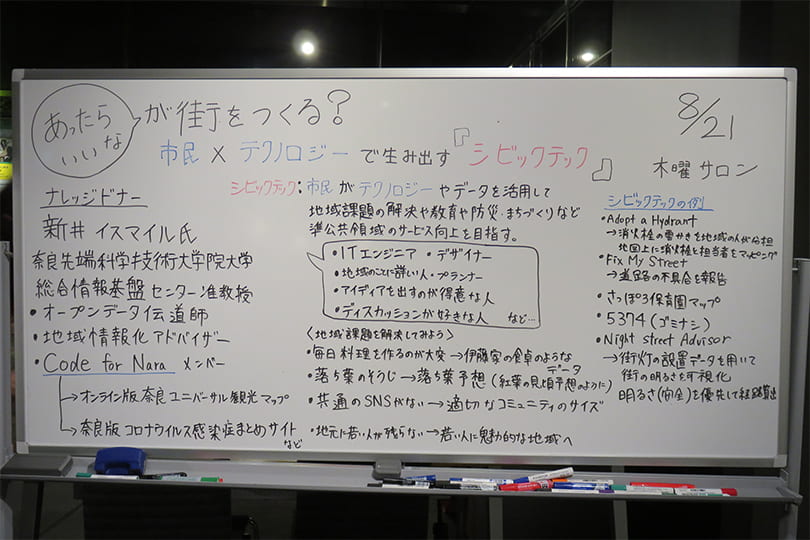 あったらいいな が街をつくる?
8/21
市民×テクノロジーで生み出す『シビックテック』
木曜サロン
ナレッジドナー
新井イスマイル氏
奈良先端科学技術大学院大学
総合情報基盤センター准教授
・オープンデータ伝道師
・地域情報化アドバイザー
・Code for Nara メンバー
→オンライン版 奈良ユニバーサル観光マップ
→奈良版コロナウイルス感染症まとめサイト
など
シビックテック:市民がテクノロジーやデータを活用して
地域課題の解決や教育や防災・まちづくりなど
準公共領域のサービス向上を目指す。
・ITエンジニア ・デザイナー
・地域のことに詳しい人・プランナー
・アイディアを出すのが得意な人
・ディスカッションが好きな人 など…
〈地域課題を解決してみよう〉
・毎日料理を作るのが大変→伊藤家の食卓のような
データ
・落ち葉のそうじ→落ち葉予想(紅葉の見頃予想のように)
・共通のSNSがない→適切なコミュニティのサイズ
・地元に若い人が残らない→若い人に魅力的な地域へ
シビックテックの例
・Adopt a Hydrant
→消火栓の雪かきを地域の人が分担
地図上に消火栓と担当者をマッピング
・Fix My Street
→道路の不具合を報告
・さっぽろ保育園マップ
・5374(ゴミナシ)
・Night street Advisor
→街灯の設置データを用いて
街の明るさを可視化
明るさ(安全)を優先して経路算出